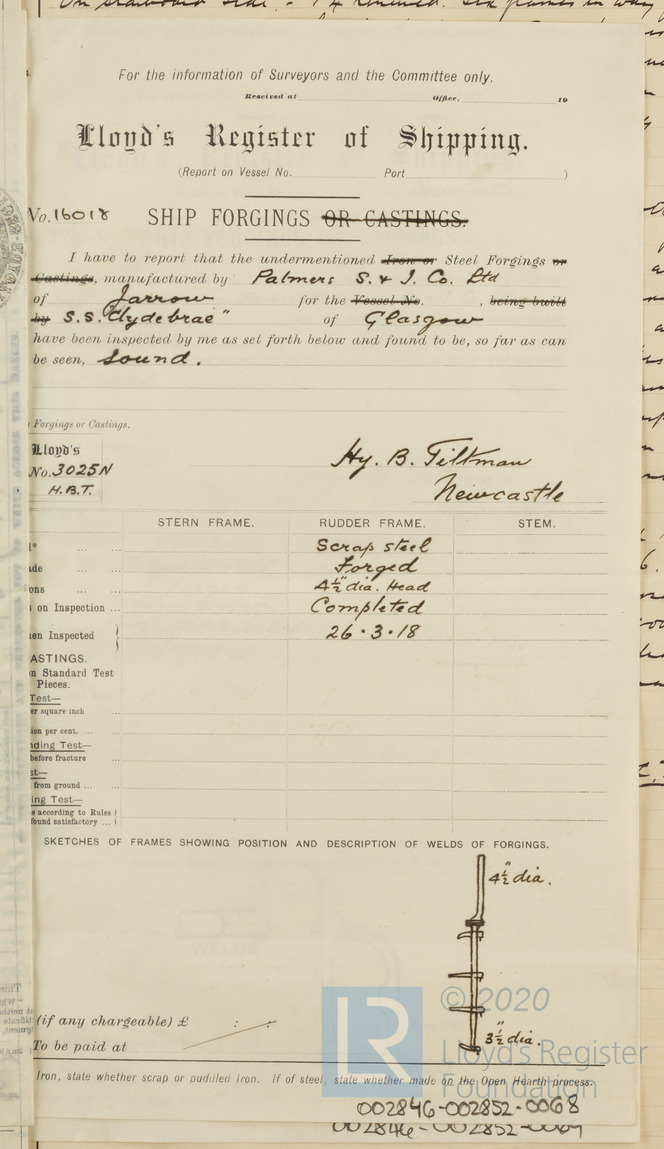 For the information of Surveyors and the Committee only.
Received at Office, 19
Lloyd's Register of Shipping.
(Report on Vessel No. Port )
No. 16018 SHIP FORGINGS OR CASTINGS.
I have to report that the undermentioned Iron or Steel Forgings or
Castings, manufactured by Palmers S. & I. Co. Ltd
of Jarrow for the Vessel No. , being built
by S.S. "Clydebrae" of Glasgow
have been inspected by me as set forth below and found to be, so far as can
be seen, Sound.
Forgings or Castings.
Lloyd's
No. 3025N
H.B.T.
Hy. B. Tiltman
Newcastle
STERN FRAME. RUDDER FRAME. STEM.
Scrap steel
Forged
4½" dia. Head
on Inspection ... Completed
Inspected 26.3.18
ASTINGS.
Standard Test
Pieces.
Test—
er square inch ...
ion per cent. ... ...
nding Test—
before fracture ...
st—
from ground ... ...
ing Test—
e according to Rules
found satisfactory ...
SKETCHES OF FRAMES SHOWING POSITION AND DESCRIPTION OF WELDS OF FORGINGS.
4½" dia.
3½" dia.
(if any chargeable) £ : :
To be paid at
Iron, state whether scrap or puddled iron. If of steel, state whether made on the Open Hearth process.
© 2020
Lloyd's Register
Foundation
002846-002852-0068
002846-002852-0069